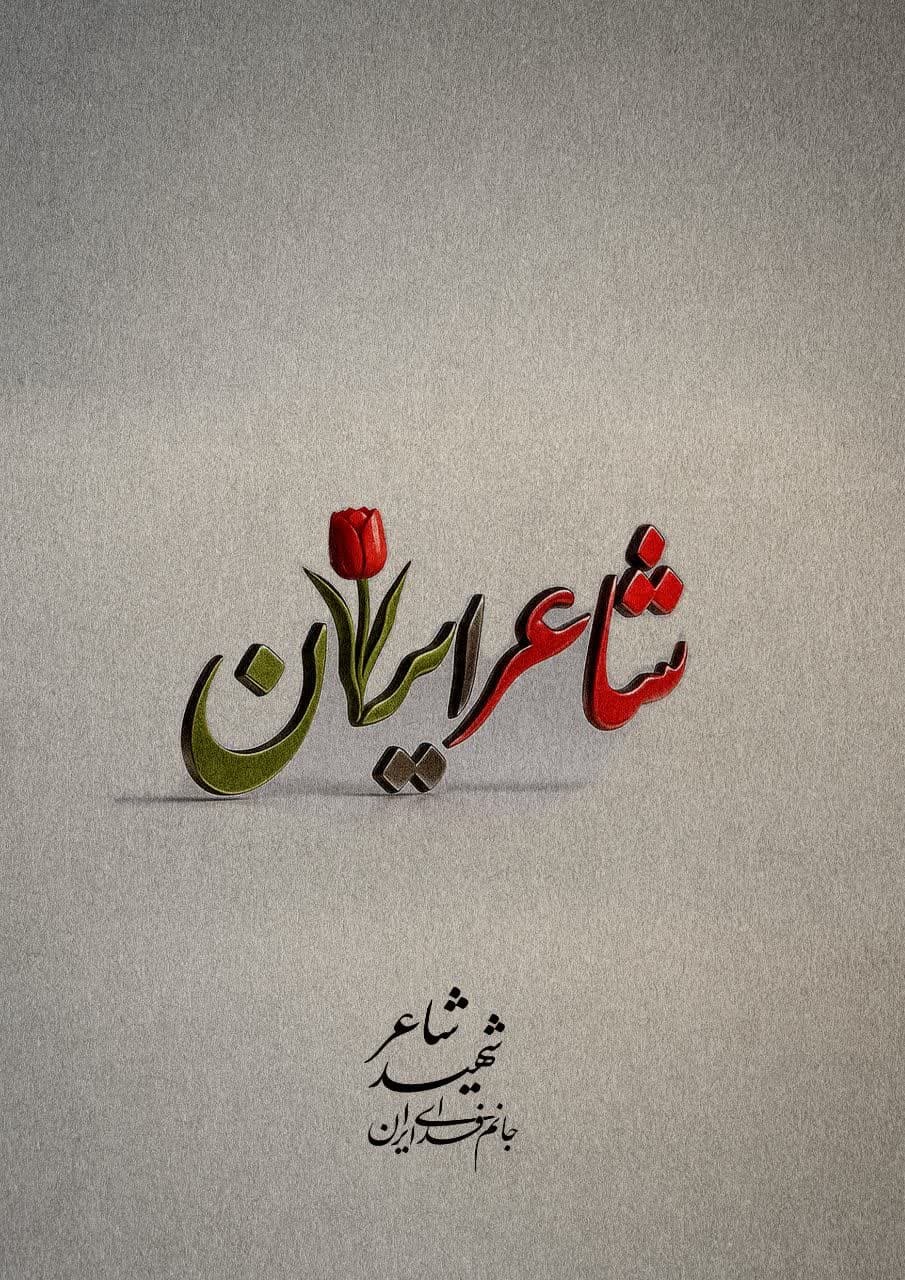 شاعر ایران
شاعر
شهید
جانم فدای ایران